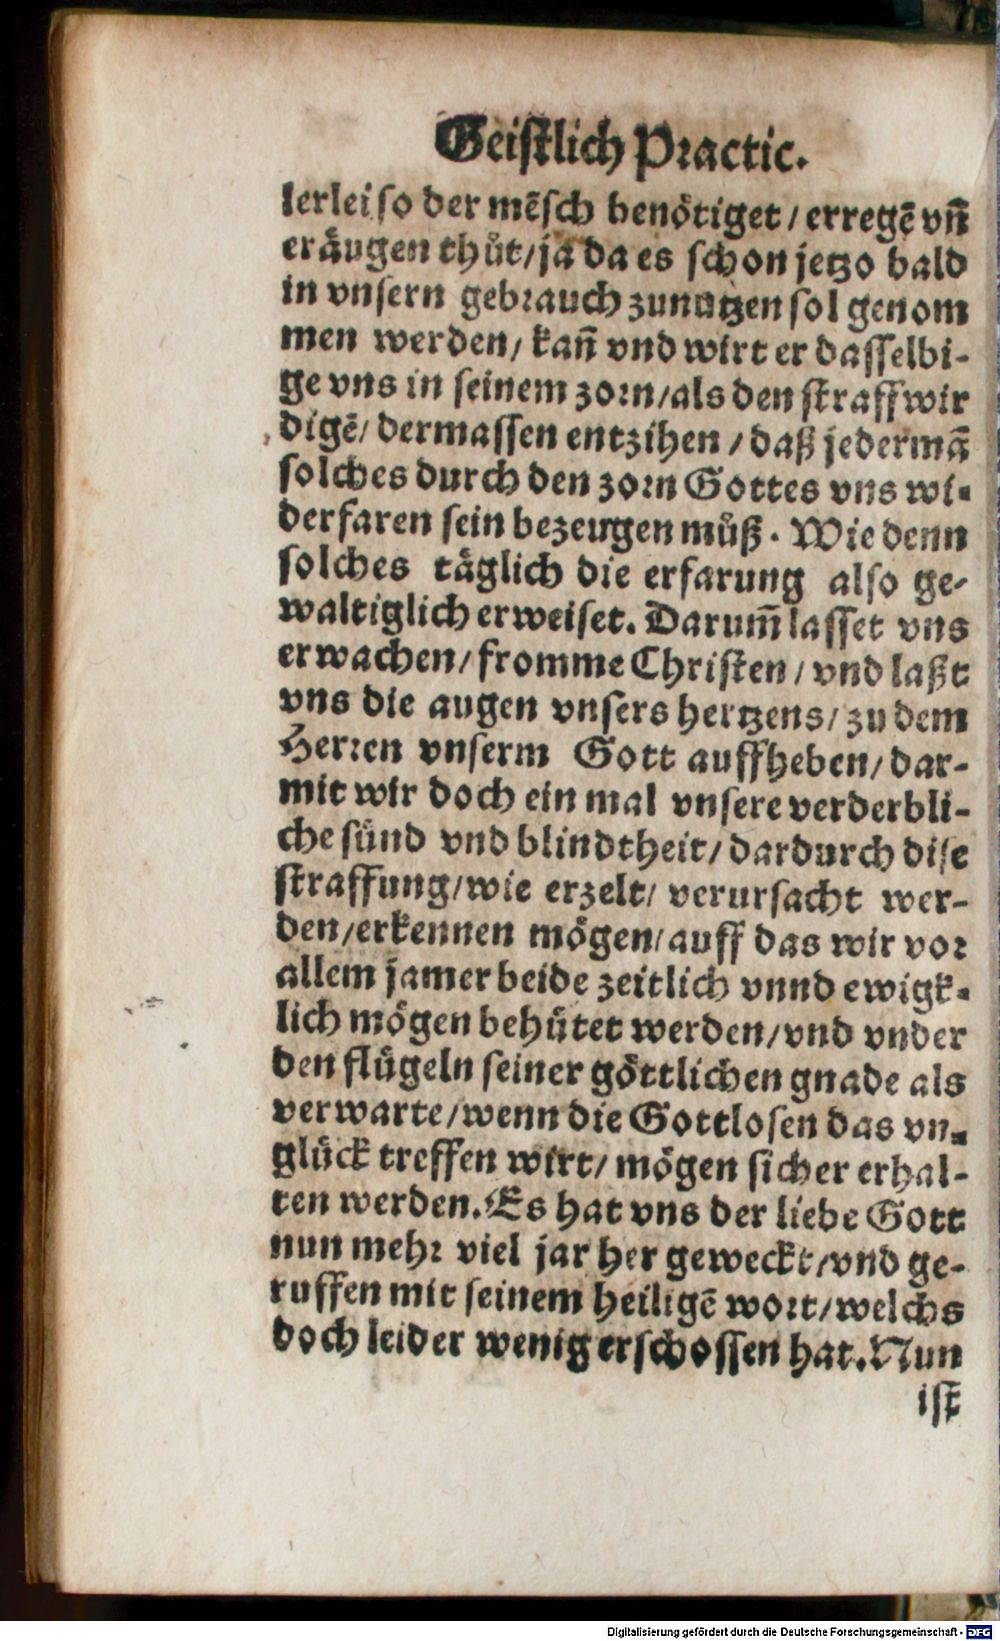 Geistlich Practic.
lerlei so der mẽsch benötiget / erregẽ vñ
eräugen thůt / ja da es schon jetzo bald
in vnsern gebrauch zunutzen sol genom
men werden / kañ vnd wirt er dasselbi-
ge vns in seinem zorn / als den straffwir
digẽ / dermassen entzihen / daß jedermã
solches durch den zorn Gottes vns wi-
derfaren sein bezeugen můß. Wie denn
solches täglich die erfarung also ge-
waltiglich erweiset. Darum̃ lasset vns
erwachen / fromme Christen / vnd laßt
vns die augen vnsers hertzens / zu dem
Herren vnserm Gott auffheben / dar-
mit wir doch ein mal vnsere verderbli-
che sünd vnd blindtheit / dardurch dise
straffung / wie erzelt / verursacht wer-
den / erkennen mögen / auff das wir vor
allem jamer beide zeitlich vnnd ewigk-
lich mögen behütet werden / vnd vnder
den flügeln seiner göttlichen gnade als
verwarte / wenn die Gottlosen das vn-
glück treffen wirt / mögen sicher erhal-
ten werden. Es hat vns der liebe Gott
nun mehr viel jar her geweckt / vnd ge-
ruffen mit seinem heiligẽ wort / welchs
doch leider wenig erschossen hat. Nun
ist
Digitalisierung gefördert durch die Deutsche Forschungsgemeinschaft - DFG